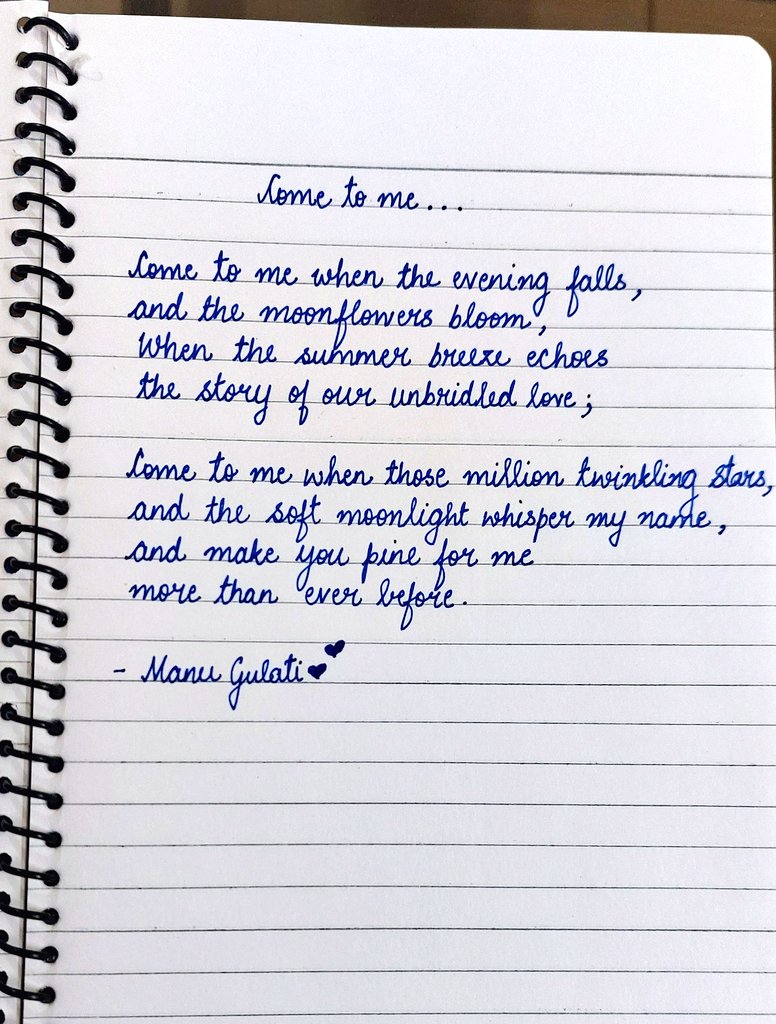 Come to me...
Come to me when the evening falls,
and the moonflowers bloom,
When the summer breeze echoes
the story of our unbridled love;
Come to me when those million twinkling stars,
and the soft moonlight whisper my name,
and make you pine for me
more than ever before.
- Manu Gulati